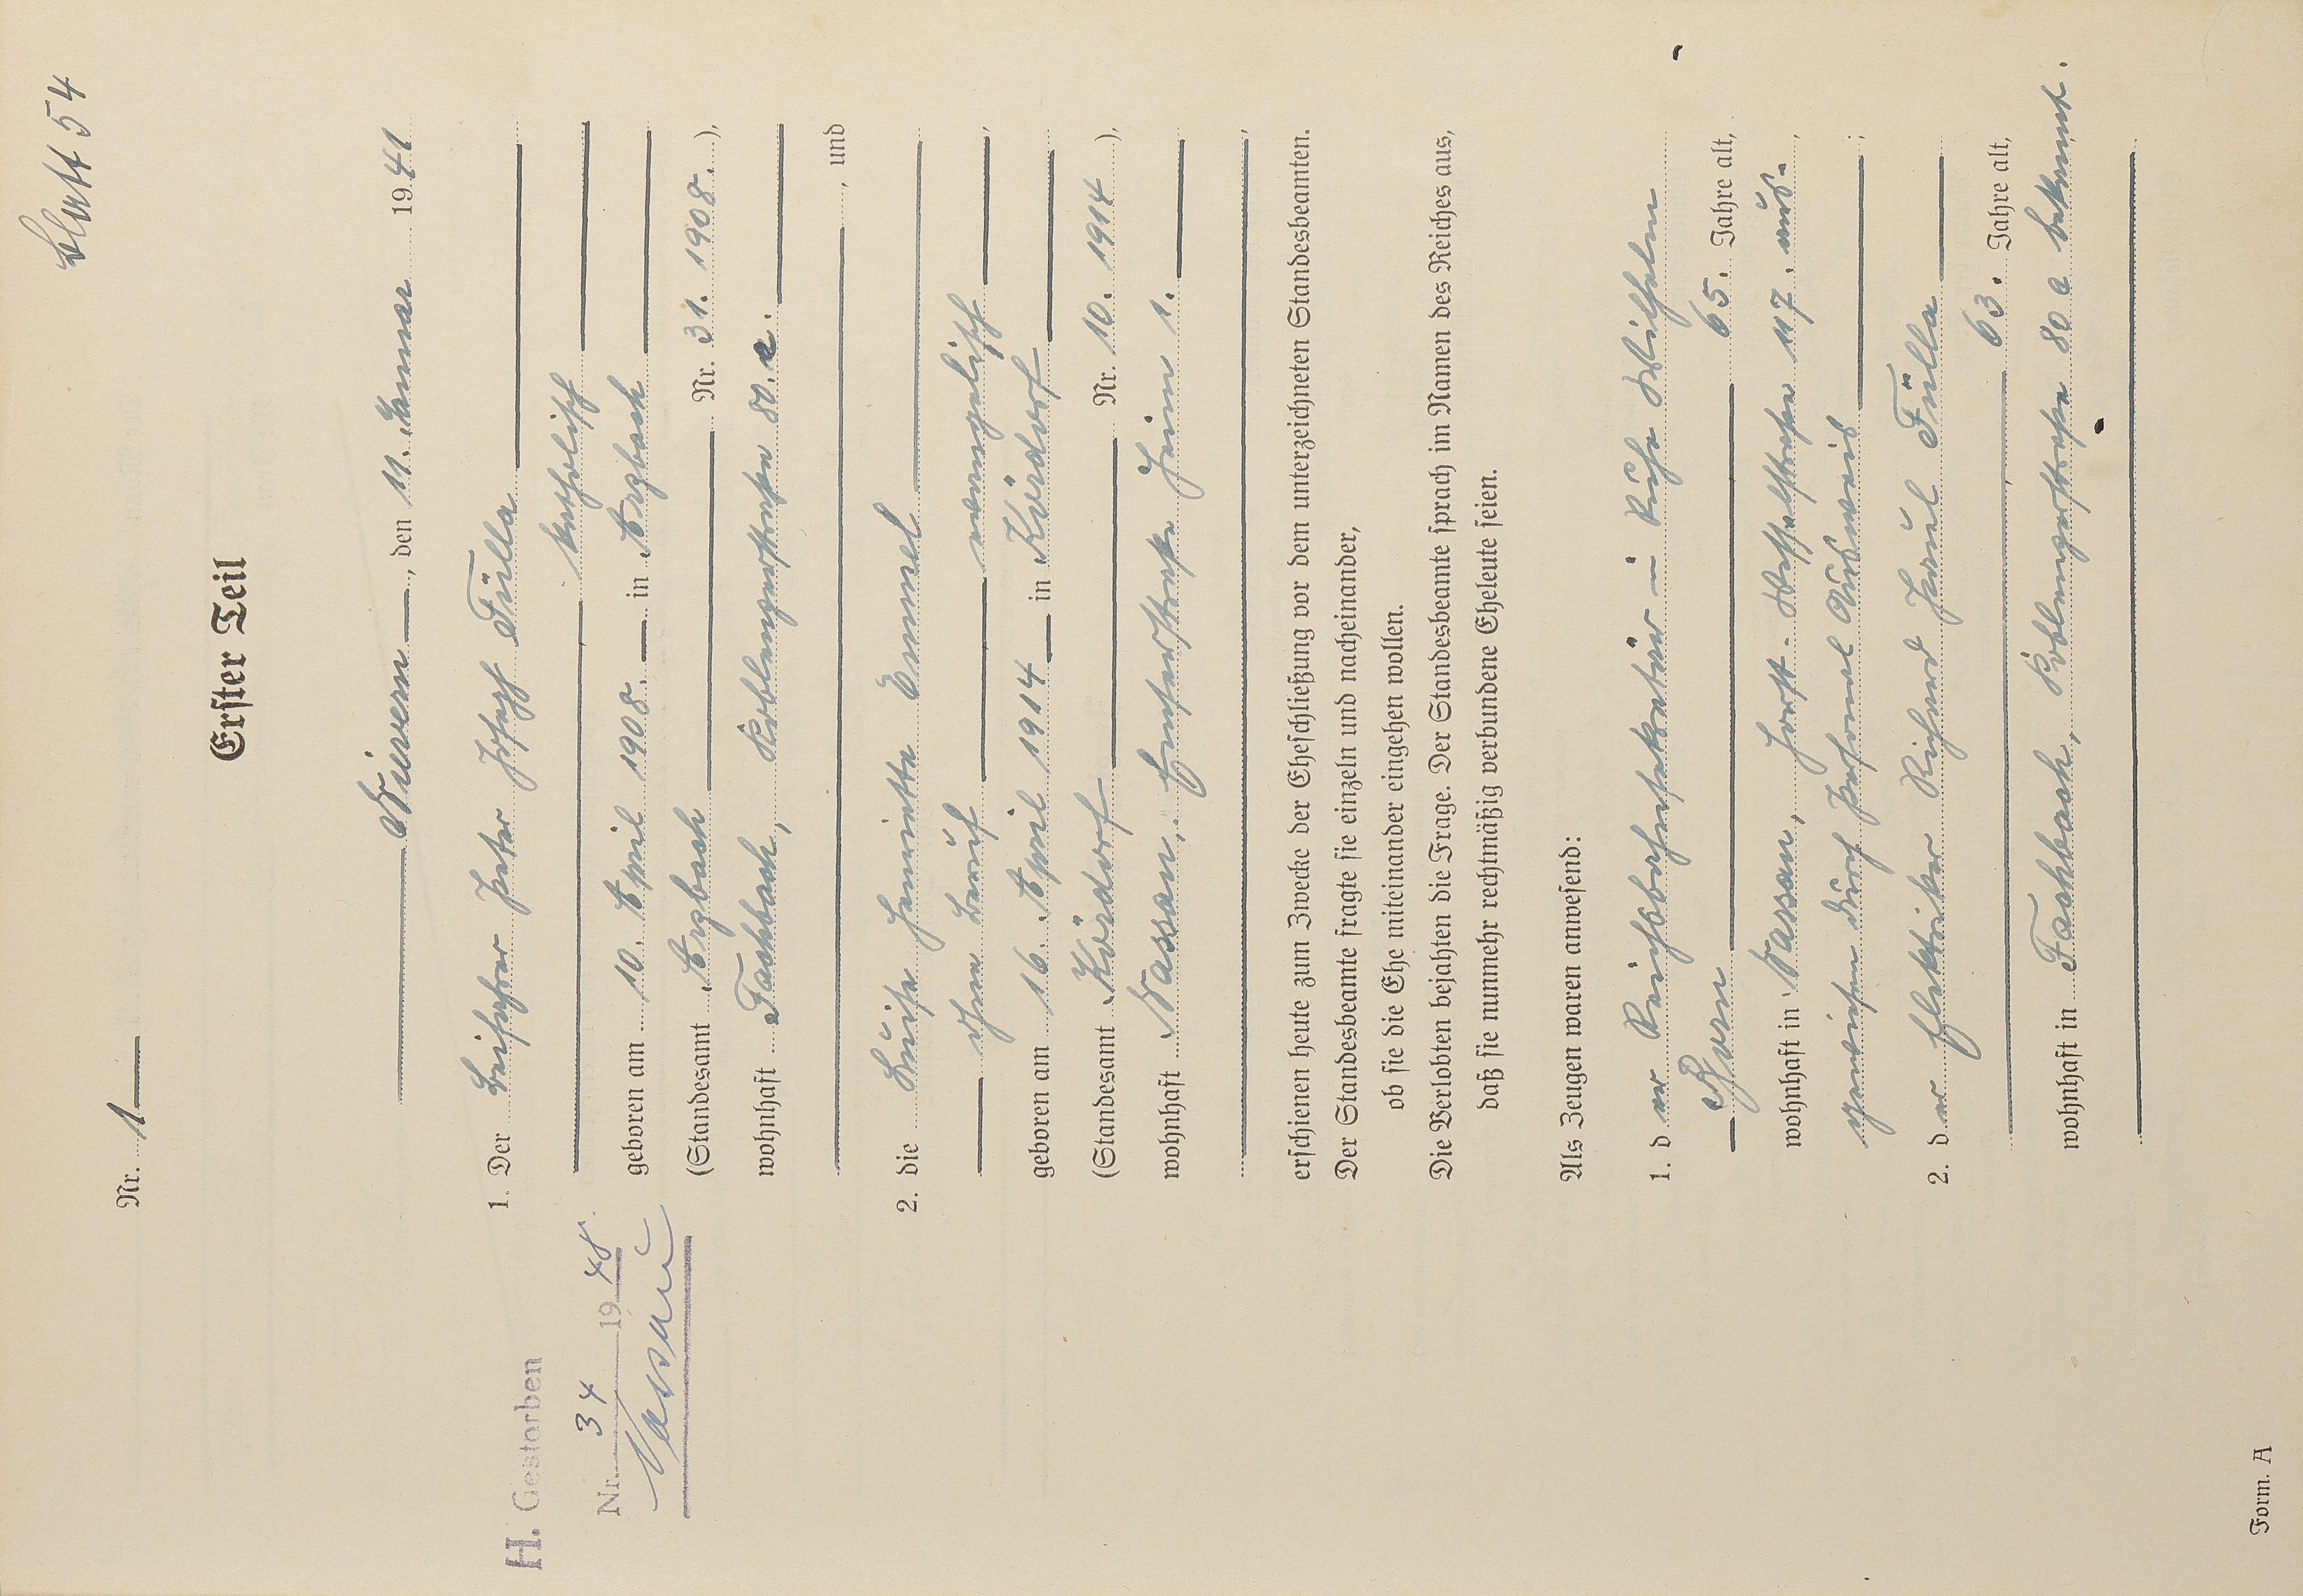 Blatt 54
Nr. 1
Erster Teil
Nievern, den 11. Januar 1941
1. Der Beifahrer Peter Josef Fülla
katholisch
geboren am 10. April 1908. in Arzbach
(Standesamt Arzbach Nr. 31. 1908.),
wohnhaft Fachbach, Koblenzerstraße 80. a.
, und
H. Gestorben
Nr. 34 1948.
Nassau
2. die Luise Henriette Emmel
ohne Beruf, evangelisch,
geboren am 16. April 1914 in Kördorf
(Standesamt Kördorf Nr. 10. 1914),
wohnhaft Nassau, Emserstraße Heim 1.
,
erschienen heute zum Zwecke der Eheschließung vor dem unterzeichneten Standesbeamten.
Der Standesbeamte fragte sie einzeln und nacheinander,
ob sie die Ehe miteinander eingehen wollen.
Die Verlobten bejahten die Frage. Der Standesbeamte sprach im Namen des Reiches aus,
daß sie nunmehr rechtmäßig verbundene Eheleute seien.
Als Zeugen waren anwesend:
1. der in Ruhe Wilhelm
Born 65. Jahre alt,
wohnhaft in Nassau, Horst-Wesselstraße 117. aus-
gewiesen durch Personal Ausweis ;
2. der Elektriker Richard Paul Fülla
, 63. Jahre alt,
wohnhaft in Fachbach, Koblenzerstraße 80 a bekannt.
Form. A